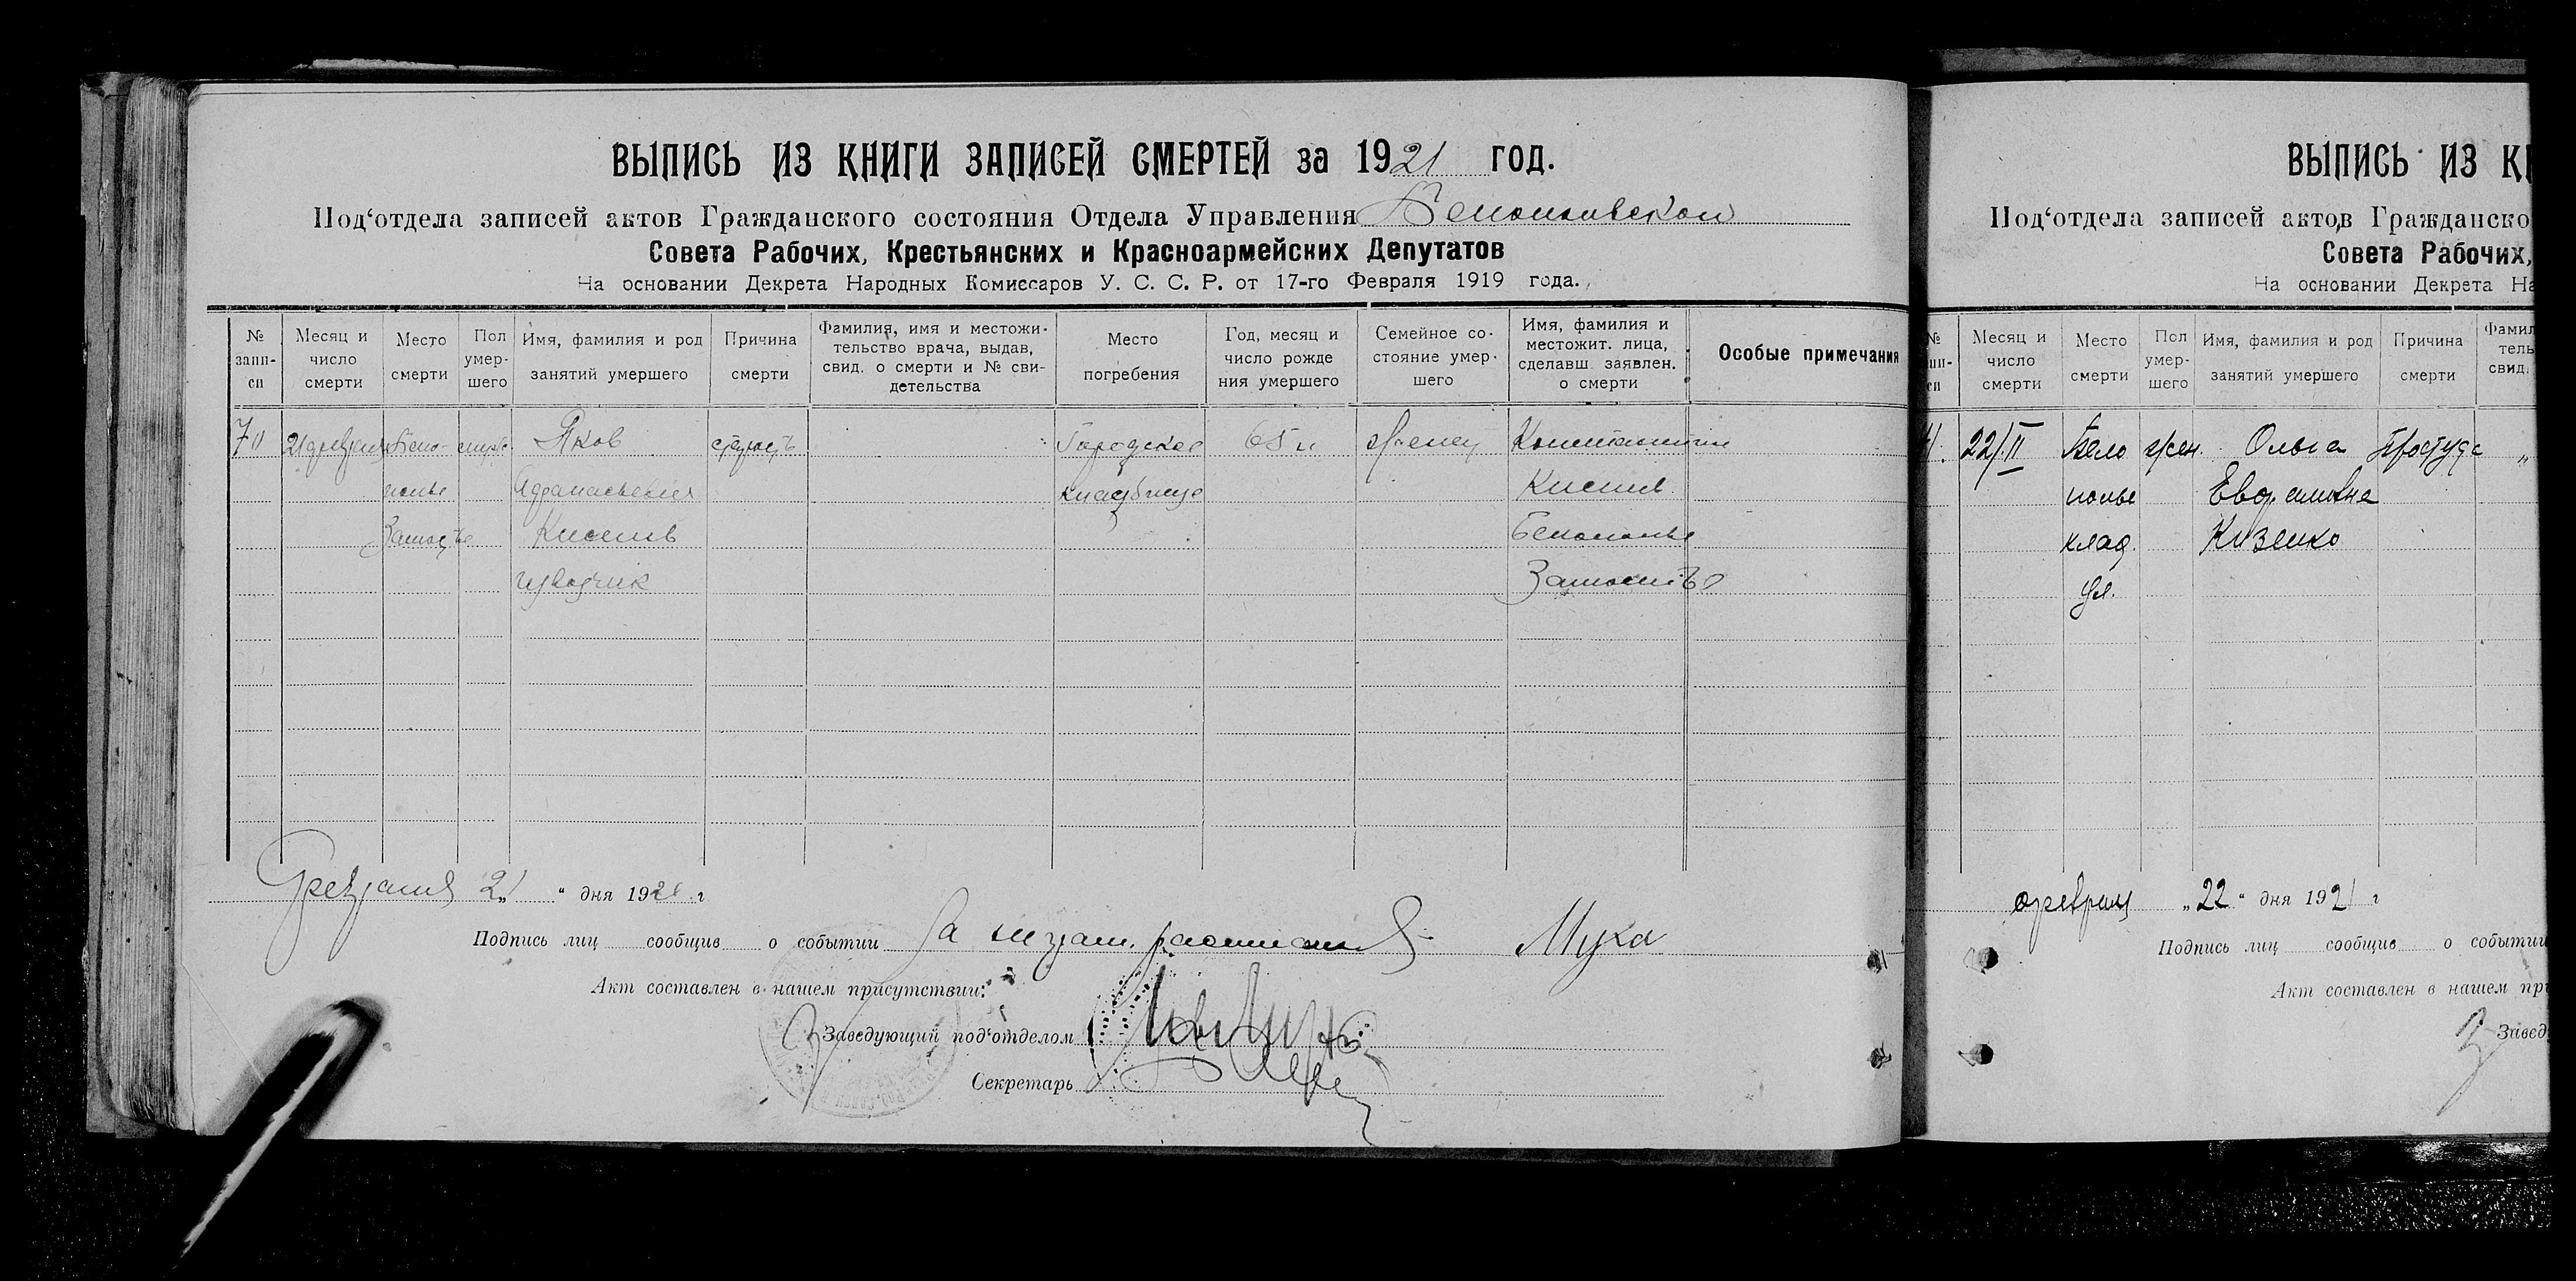 ВЫПИСЬ ИЗ КНИГИ ЗАПИСЕЙ СМЕРТЕЙ за 1921 год.
Под‘отдела записей актов Гражданского состояния Отдела Управления
Совета Рабочих, Крестьянских и Красноармейских Депутатов
На основании Декрета Народных Комиссаров У. С. С. Р. от 17-го Февраля 1919 года.
№ запи-си
Месяц и число смерти
Место смерти
Пол умер-шего
Имя, фамилия и род занятий умершего
Причина смерти
Фамилия, имя и местожи-тельство врача, выдав, свид. о смерти и № сви-детельства
Место погребения
Год, месяц и число рожде ния умершего
Семейное со-стояние умер-шего
Имя, фамилия и местожит. лица, сделавш заявлен. о смерти
Особые примечания
70 21 февраля Бело- Яков старость Городское 65 л Константин
полье Афанасьевич кладбище
Замостье Белополье
извозчик Замостье
Февраля 21 “ дня 1921 г
Подпись лиц сообщив о событии За неграм. Мука
Акт составлен в нашем присутствии:
Заведующий под‘отделом
Секретарь
ВЫПИСЬ ИЗ КН
Под‘отдела записей актов Гражданско
Совета Рабочих,
На основании Декрета На
№ пи-си
Месяц и число смерти
Место смерти
Пол умер-шего
Имя, фамилия и род занятий умершего
Причина смерти
Фамил тель свид.
22/II Бело жен. Ольга Простуда „
полье Евфимовна
клад. Кизенко
ул.
февраля „22“ дня 1921 г
Подпись лиц сообщив о событии
Акт составлен в нашем пр
Завед